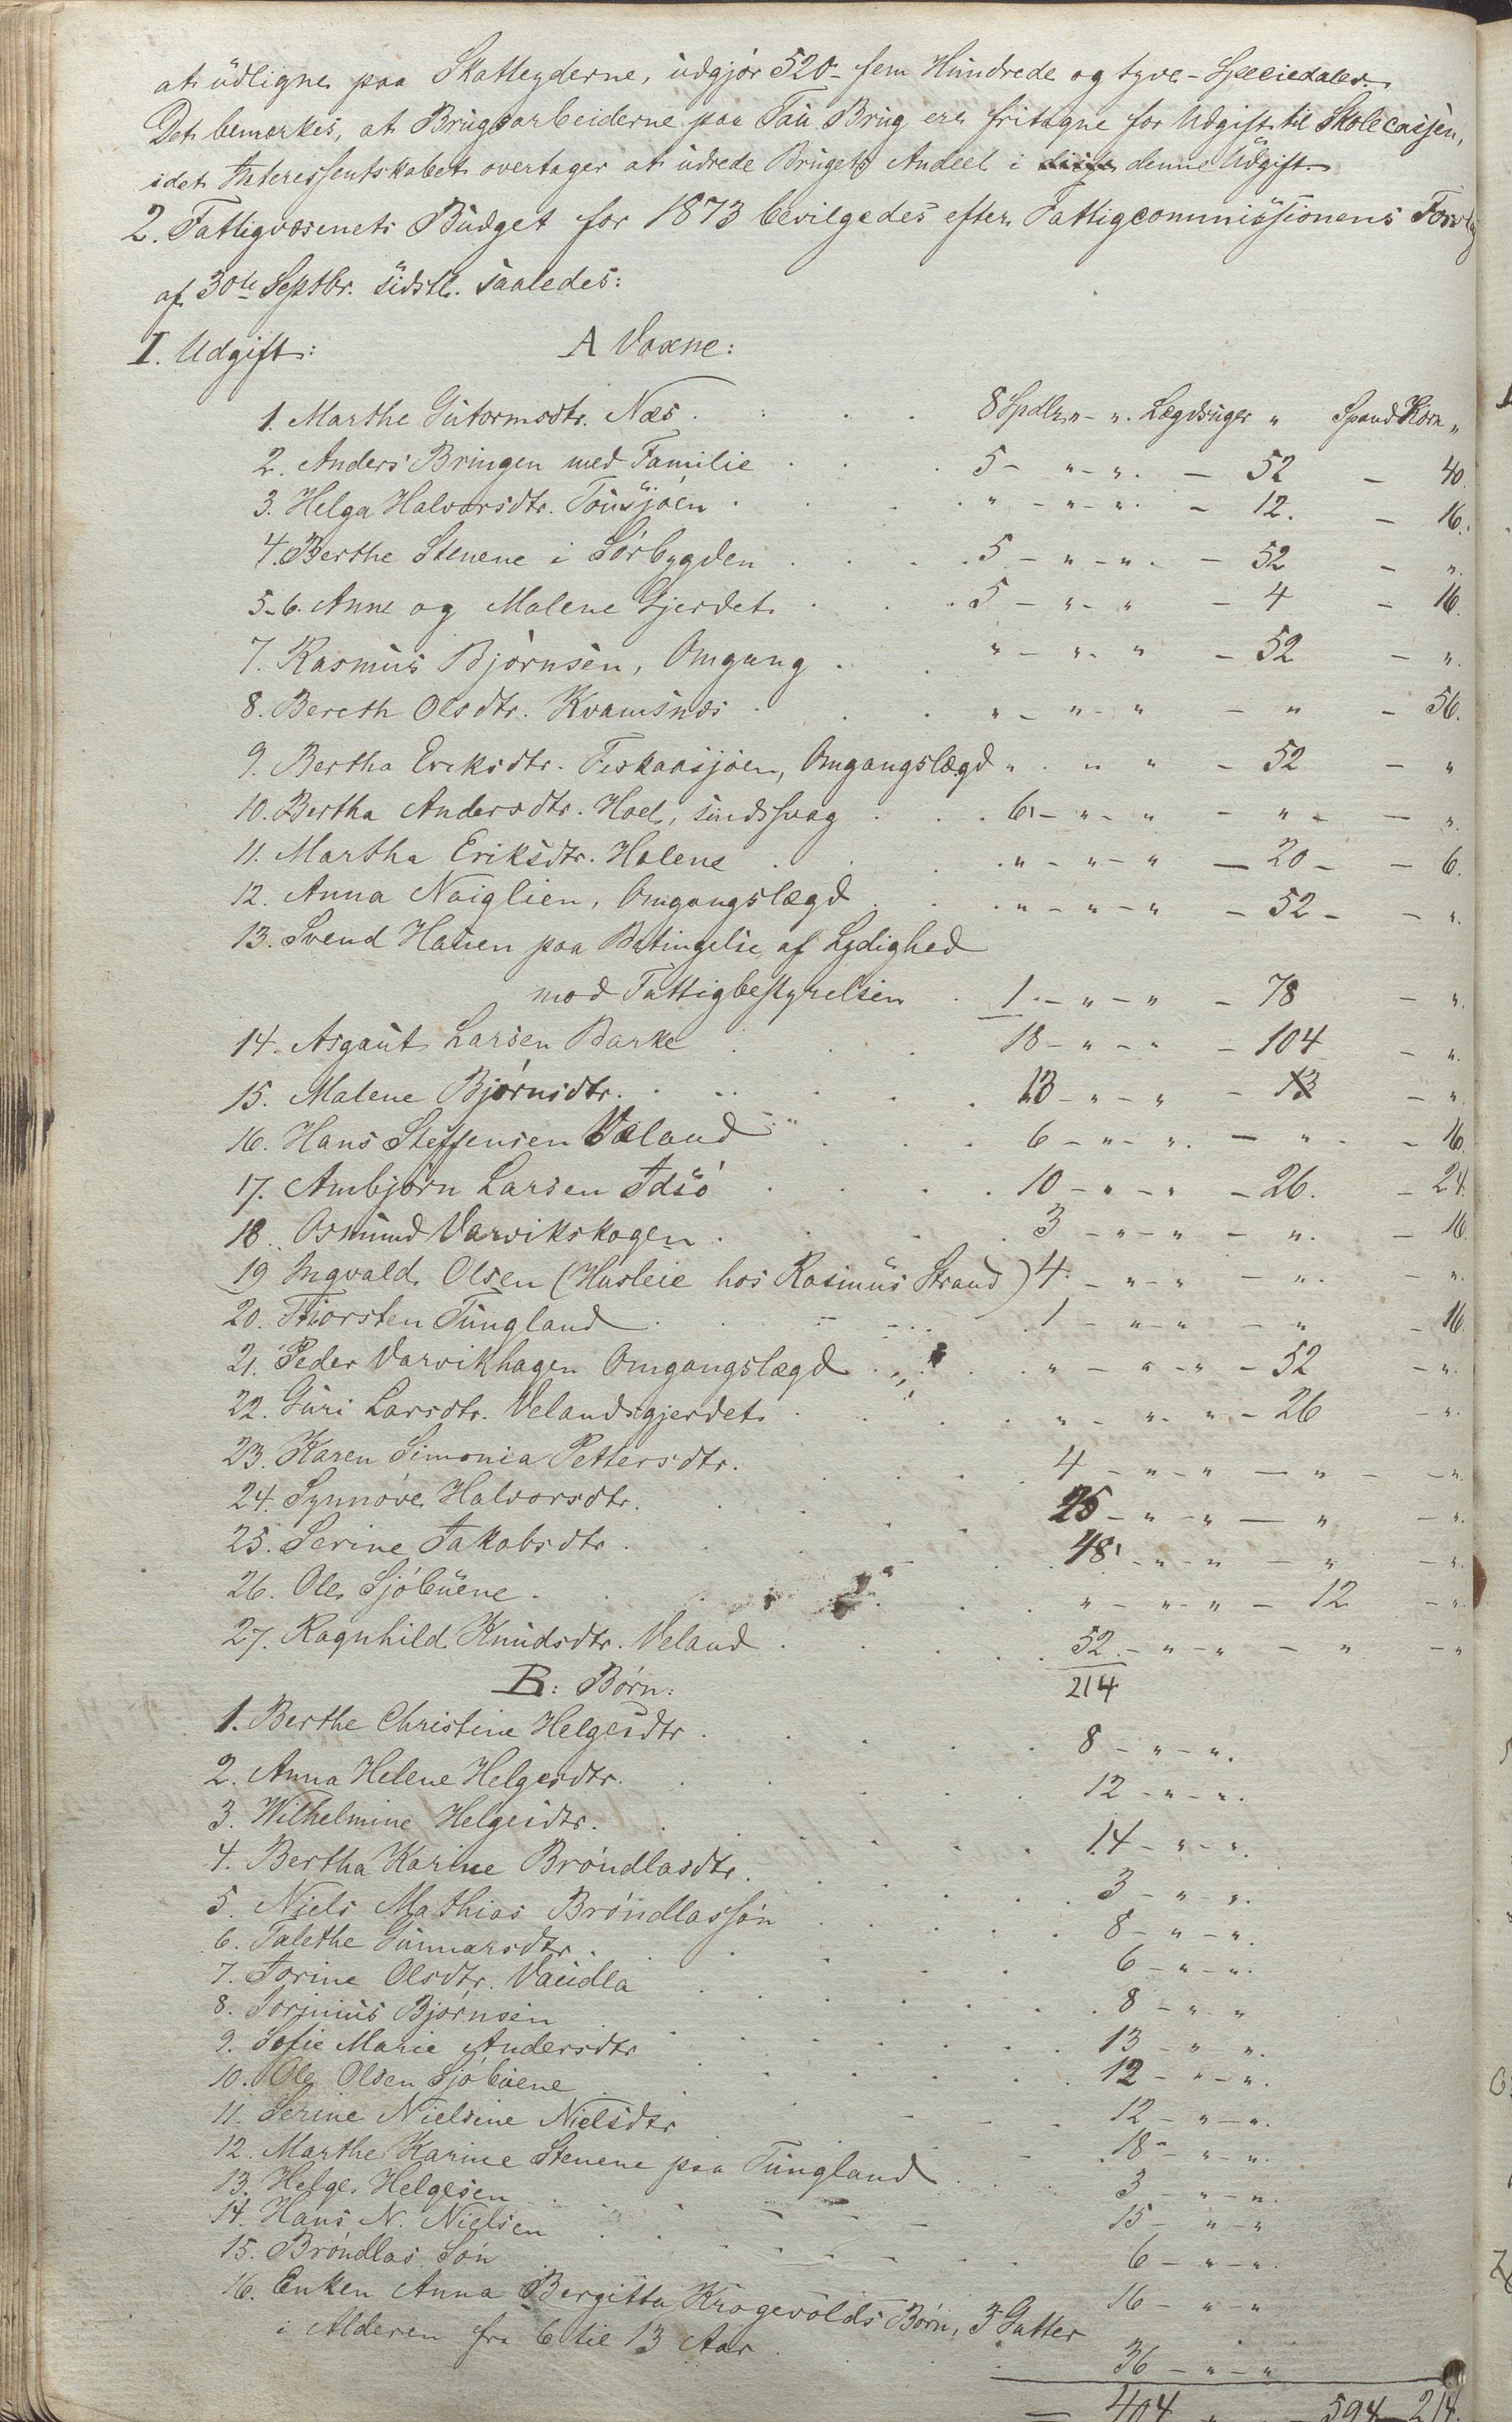 at udligne paa Skatteyderne, udgjør 520- fem Hundrede og tyve- Speciedaler.
Det bemærkes, at Brugsarbeiderne paa Tau Brug ere fritagne for Udgift til Skolecassen,
idet Interessentskabet overtager at udrede Brugets Andeel i denne Udgift.
2. Fattigvæsenets Budget for 1873 bevilgedes efter Fattigcommissionens Forslag
af 30te Septbr. sidstl. saaledes:
I. Udgift: A Voxne:
1. Marthe Gutormsdtr. Næs . . . 8 Spdlr. " - ". Lægdsuger " Spand Korn "
2. Anders Bringen med Familie . . . 5 - " - ". - 52 - 40
3. Helga Halvorsdtr. Tousjøen . . . " - " - ". - 12. - 16.
4. Berthe Stenene i Sørbygden . . . 5 - " - ". - 52 - ".
5-6. Anne og Malene Gjerdet . . . 5 - " - " - 4 - 16.
7. Rasmus Bjørnsen, Omgang . . " - " - " - 52 - ".
8. Bereth Olsdtr. Kvamsnæs . . . " - " - " - " - 56.
9. Bertha Eriksdtr. Fiskaasjøen, Omgangslægd " . " - " - 52 - "
10. Bertha Andersdtr. Hoel, sindssvag . . . 6 - " - " - " - - ".
11. Martha Eriksdtr. Halene . . . " - " - " - 20 - - 6.
12. Anna Noiglien, Omgangslægd . . . " - " - " - 52 - - ".
13. Svend Hauen paa Betingelse af Lydighed
mod Fattigbestyrelsen . 1. - " - " - 78 - ".
14. Asgaut Larsen Barke . . . 18 - " - " - 104 - ".
15. Malene Bjørnsdtr. . . . . 13 - " - " - 13 - ".
16. Hans Steffensen Væland . . . 6 - " - ". - ". - 16
17. Ambjørn Larsen Idsø . . . 10 - " - " - 26. - 24.
18. Osmund Varvikskogen . . . 3 - " - " - ". - 16
19 Ingvald Olsen (Husleie hos Rasmus Strand) 4. - " - " - ". - ".
20. Thorsten Tungland . . . 1 - " - " - " - 16
21. Peder Varvikhagen Omgangslægd . . . " - " - " - 52 - ".
22. Guri Larsdtr. Velandsgjerdet . . . " - " - " - 26 - ".
23. Karen Simonia Pettersdtr. . . . 4 - " - " - " - - ".
24. Synnøve Halvorsdtr. . . . 25 - " - " - " - ".
25. Serine Jakobsdtr . . . 48 - " - " - " - ".
26. Ole Sjøbuene . . . " - " - " - 12 - ".
27. Ragnhild Knudsdtr. Veland . . . 52. - " - " - " - "
214
B: Børn:
1. Berthe Christine Helgesdtr . . . 8 - " - ".
2. Anna Helene Helgesdtr. . . . 12 - " - ".
3. Wilhelmine Helgesdtr. . . . 14 - " - ".
4. Bertha Karine Brøndlasdtr. . . . 3 - " - ".
5. Niels Mathias Brøndlassøn . . . 8 - " - ".
6. Talethe Gunnarsdtr. . . . 6 - " - ".
7. Torine Olsdtr. Vaudla . . . 8 - " - "
8. Sorinius Bjørnsen . . . 13 - " ".
9. Sofie Marie Andersdtr . . . 12 - " - ".
10. Ole Olsen Sjøbuene . . . 12 - " - ".
11. Serine Nielsine Nielsdtr . . . 18 - " - ".
12. Marthe Karine Stenene paa Tungland . . . 3 - " - ".
13. Helge Helgesen . . . 15 - " - "
14. Hans N. Nielsen . . . 6 - " - ".
15. Brøndlas Søn . . . 16 - " - "
16. Enken Anna Bergitta Kragevolds Børn, 3 Gutter
i Alderen fra 6 til 13 Aar . . . 36 - " - "
404 " - 594 - 214.